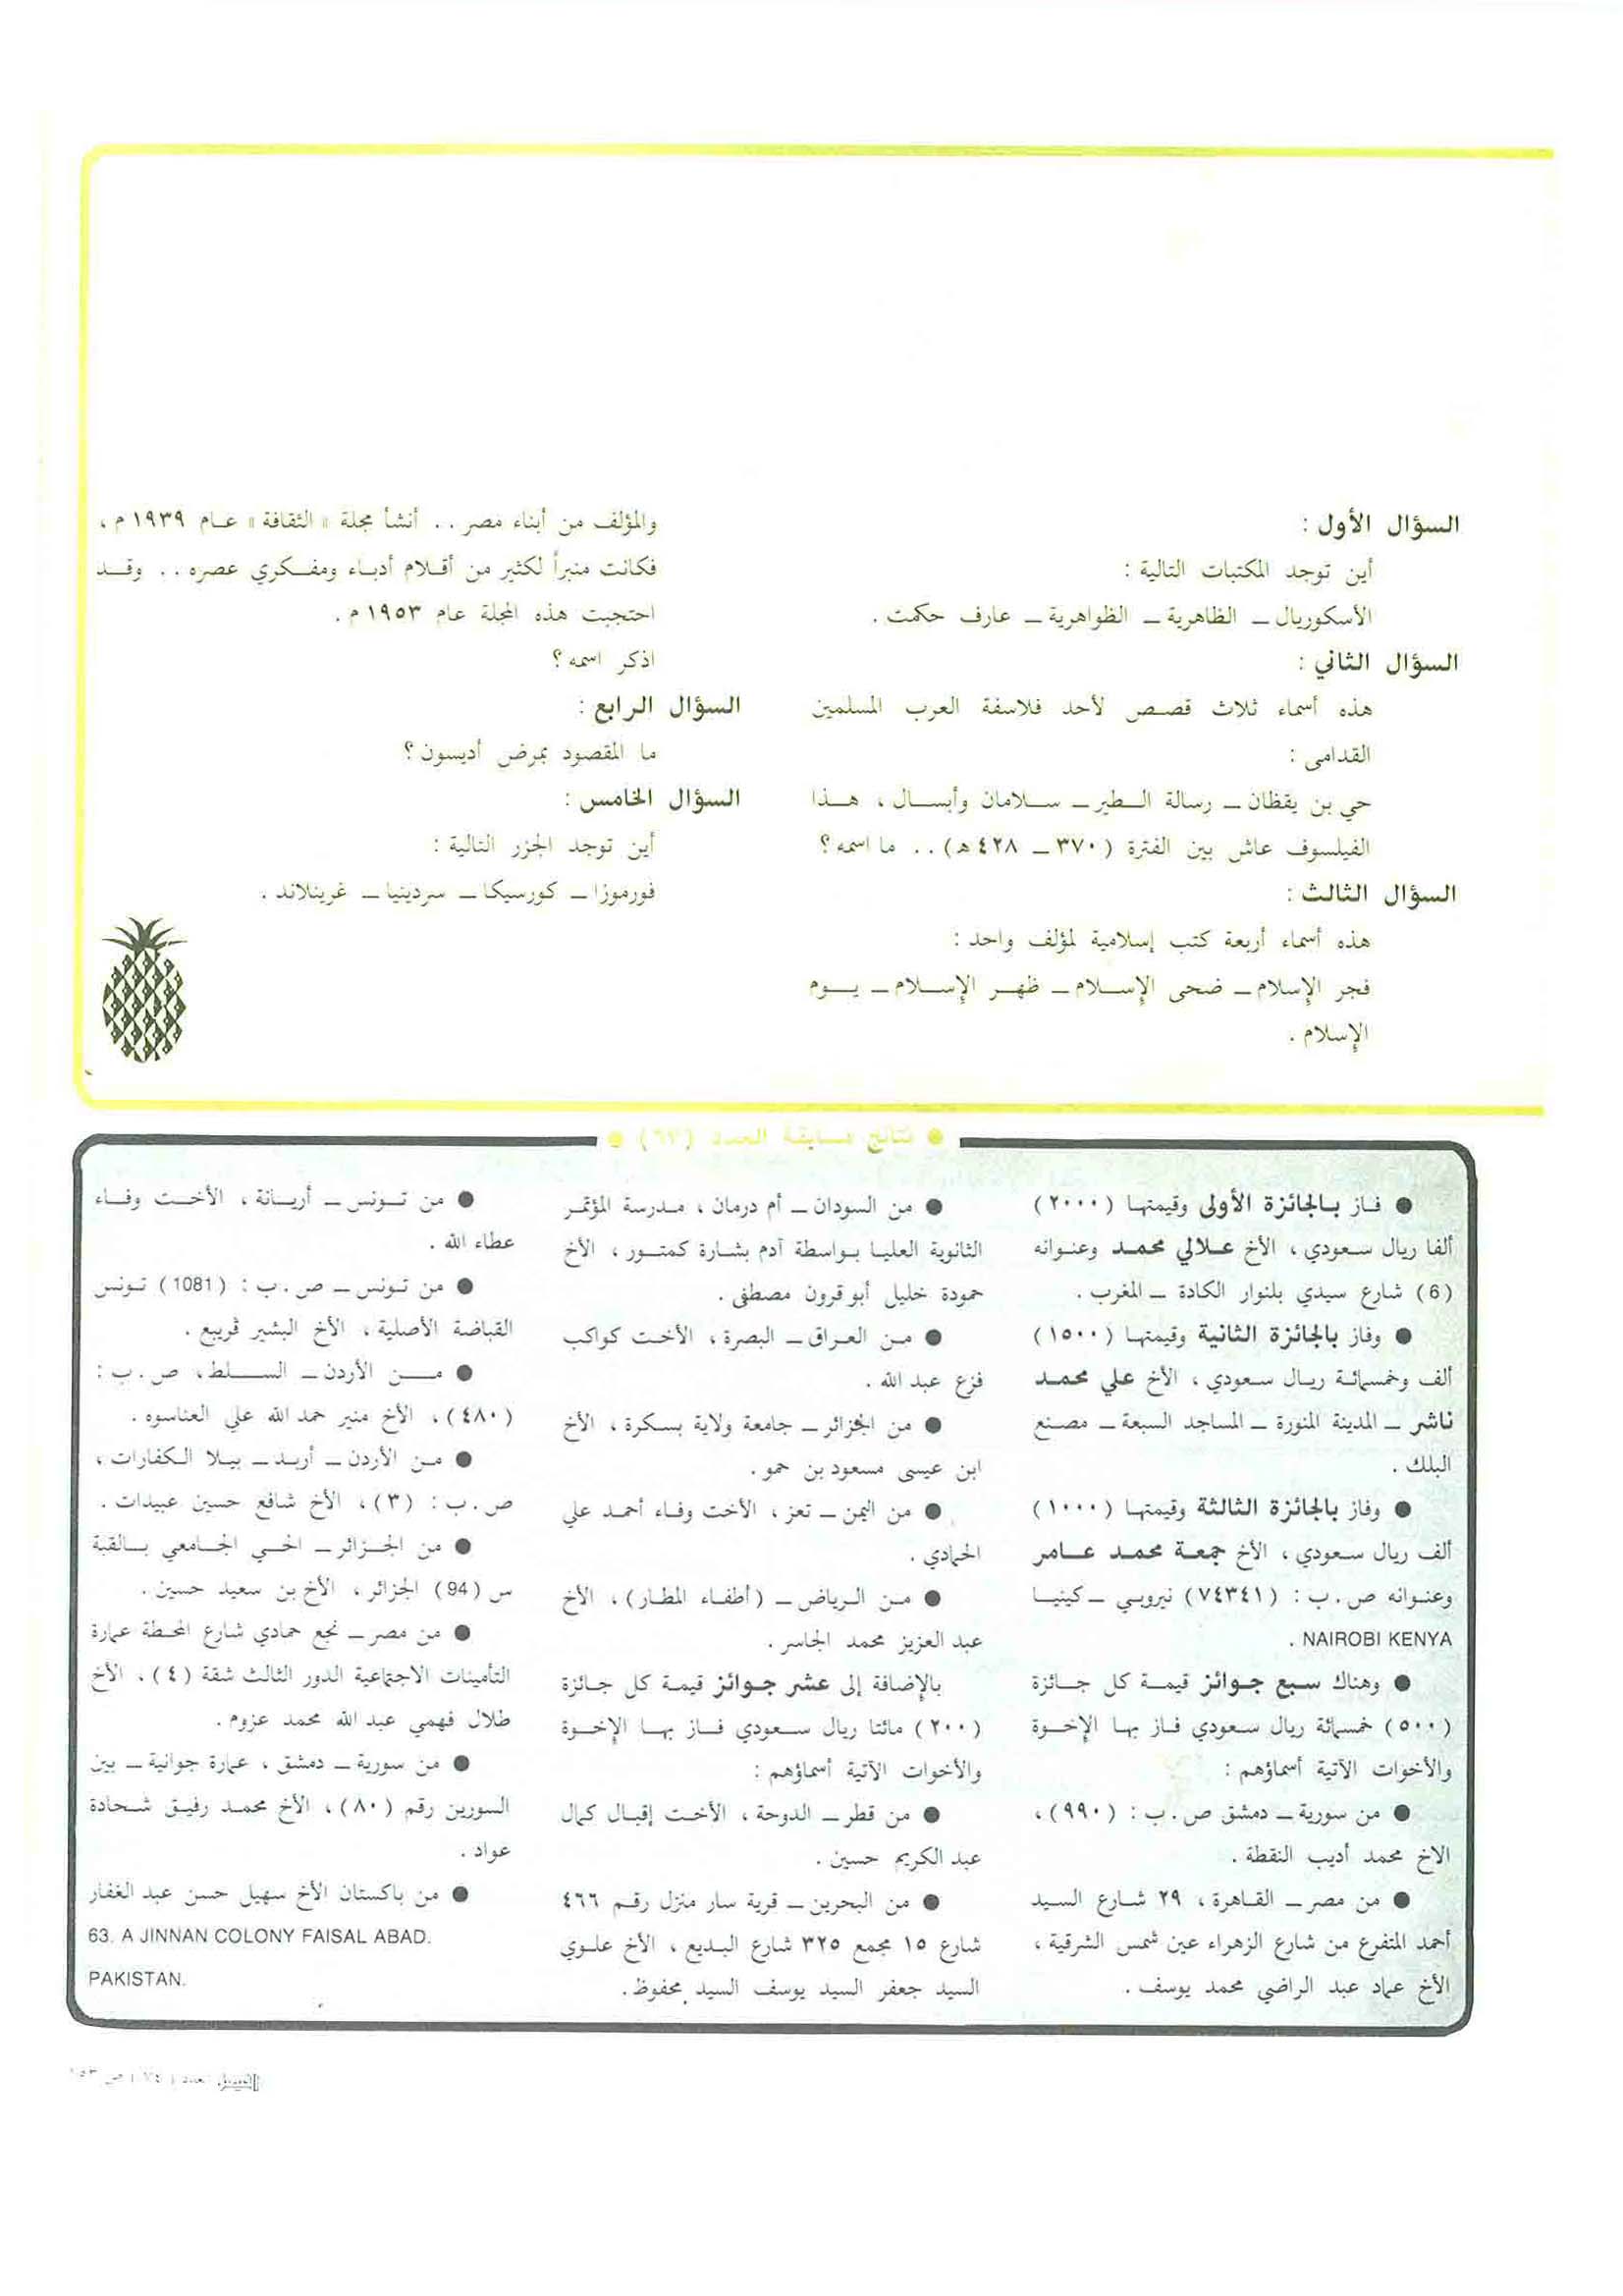 السؤال الأول :
أين توجد المكتبات التالية :
الأسكوريال ــ الظاهرية ــ الظواهرية ــ عارف حكمت .
السؤال الثاني :
هذه أسماء ثلاث قصص لأحد فلاسفة العرب المسلمين
القدامى :
حي بن يقظان ــ رسالة الطير ــ سلامان وأبسال ، هذا
الفيلسوف عاش بين الفترة ( ٣٧٠ ــ ٤٢٨ هـ ) . . ما اسمه ؟
السؤال الثالث :
هذه أسماء أربعة كتب إسلامية لمؤلف واحد :
فجر الإسلام ــ ضحى الإسلام ــ ظهر الإسلام ــ يوم
الإسلام .
والمؤلف من أبناء مصر . . أنشأ مجلة « الثقافة » عام ١٩٣٩ م ،
فكانت منبراً لكثير من أقلام أدباء ومفكري عصره . . وقد
احتجبت هذه المجلة عام ١٩٥٣ م .
اذكر اسمه ؟
السؤال الرابع :
ما المقصود بمرض أديسون ؟
السؤال الخامس :
أين توجد الجزر التالية :
فورموزا ــ كورسيكا ــ سردينيا ــ غرينلاند .
● نتائج مسابقة العدد (٦٣) ●
● فاز بالجائزة الأولى وقيمتها ( ٢٠٠٠ )
ألفا ريال سعودي ، الأخ علالي محمد وعنوانه
( 6 ) شارع سيدي بلنوار الكادة ــ المغرب .
● وفاز بالجائزة الثانية وقيمتها ( ١٥٠٠ )
ألف وخمسمائة ريال سعودي ، الأخ علي محمد
ناشر ــ المدينة المنورة ــ المساجد السبعة ــ مصنع
البلك .
● وفاز بالجائزة الثالثة وقيمتها ( ١٠٠٠ )
ألف ريال سعودي ، الأخ جمعة محمد عامر
وعنوانه ص . ب : ( ٧٤٣٤١ ) نيروبي ــ كينيا
NAIROBI KENYA .
● وهناك سبع جوائز قيمة كل جائزة
( ٥٠٠ ) خمسمائة ريال سعودي فاز بها الإخوة
والأخوات الآتية أسماؤهم :
● من سورية ــ دمشق ص . ب : ( ٩٩٠ ) ،
الاخ محمد أديب النقطة .
● من مصر ــ القاهرة ، ٢٩ شارع السيد
أحمد المتفرع من شارع الزهراء عين شمس الشرقية ،
الأخ عماد عبد الراضي محمد يوسف .
● من السودان ــ أم درمان ، مدرسة المؤتمر
الثانوية العليا بواسطة آدم بشارة كمتور ، الأخ
حمودة خليل أبو قرون مصطفى .
● من العراق ــ البصرة ، الأخت كواكب
فزع عبد الله .
● من الجزائر ــ جامعة ولاية بسكرة ، الأخ
ابن عيسى مسعود بن حمو .
● من اليمن ــ تعز ، الأخت وفاء أحمد علي
الحمادي .
● من الرياض ــ ( أطفاء المطار ) ، الأخ
عبد العزيز محمد الجاسر .
بالإضافة إلى عشر جوائز قيمة كل جائزة
( ٢٠٠ ) مائتا ريال سعودي فاز بها الإخوة
والأخوات الآتية أسماؤهم :
● من قطر ــ الدوحة ، الأخت إقبال كمال
عبد الكريم حسين .
● من البحرين ــ قرية سار منزل رقم ٤٦٦
شارع ١٥ مجمع ٣٢٥ شارع البديع ، الأخ علوي
السيد جعفر السيد يوسف السيد محفوظ .
● من تونس ــ أريانة ، الأخت وفاء
عطاء الله .
● من تونس ــ ص . ب : ( 1081 ) تونس
القباضة الأصلية ، الأخ البشير ڤريبع .
● من الأردن ــ السلط ، ص . ب :
( ٤٨٠ ) ، الأخ منير حمد الله علي العناسوه .
● من الأردن ــ أربد ــ بيلا الكفارات ،
ص . ب : ( ٣ ) ، الأخ شافع حسين عبيدات .
● من الجزائر ــ الحي الجامعي بالقبة
س ( 94 ) الجزائر ، الأخ بن سعيد حسين .
● من مصر ــ نجع حمادي شارع المحطة عمارة
التأمينات الاجتماعية الدور الثالث شقة ( ٤ ) ، الأخ
طلال فهمي عبد الله محمد عزوم .
● من سورية ــ دمشق ، عمارة جوانية ــ بين
السورين رقم ( ٨٠ ) ، الأخ محمد رفيق شحادة
عواد .
● من باكستان الأخ سهيل حسن عبد الغفار
63. A JINNAN COLONY FAISAL ABAD.
PAKISTAN.